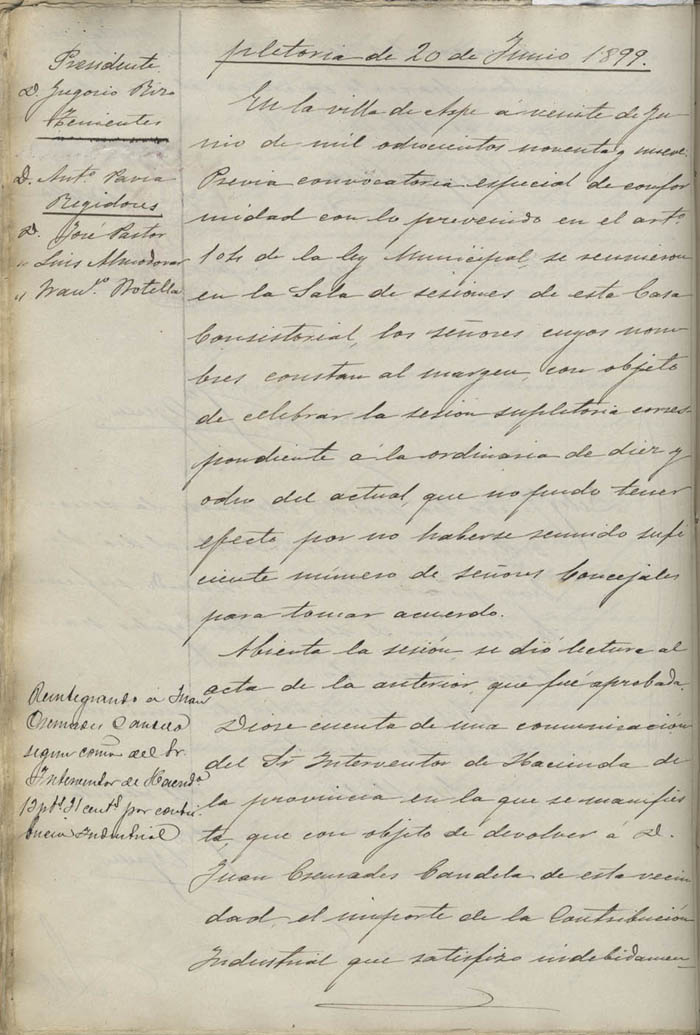 Presidente
D. Gregorio Rizo
Tenientes
D. Antº. Pavia
Regidores
D. José Pastor
" Luis Almodovar
" Franº. Botella
pletoria de 20 de Junio 1899.
En la villa de Aspe á veinte de Ju
nio de mil ochocientos noventa y nueve.
Previa convocatoria especial de confor
midad con lo prevenido en el artº.
104 de la ley Municipal, se reunieron
en la Sala de sesiones de esta Casa
Consistorial, los señores cuyos nom-
bres constan al margen, con objeto
de celebrar la sesión supletoria corres
pondiente á la ordinaria de diez y
ocho del actual, que no pudo tener
efecto por no haberse reunido sufi
ciente número de señores Concejales
para tomar acuerdo.
Abierta la sesión, se dió lectura al
acta de la anterior, que fué aprobada.
Diose cuenta de una comunicación
del Sr Interventor de Hacienda de
la provincia en la que se manifies
ta, que con objeto de devolver á D.
Juan Cremades Candela de esta vecin
dad, el importe de la Contribución
Industrial que satisfizo indebidamen-
Reintegrando á Juan
Cremades Candela
segun comº. del Sr.
Interventor de Hacndª
12 ptˢ. 91 centˢ. por contri-
bucion Industrial